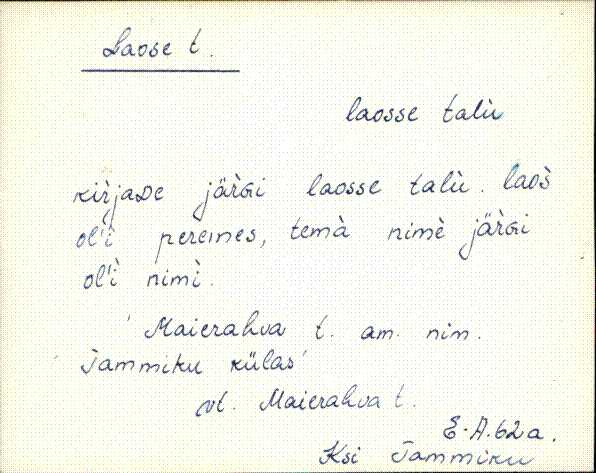 Laose t.
laosse talù
kirjaDe järGi laosse talù. laos̀
ol'ì peremes, temà nimè järGi
ol'ì nimì.
'Maierahva t. am. nim.
Tammiku külas'
vt. Maierahva t.
E. A. 62a.
Ksi Tammiku